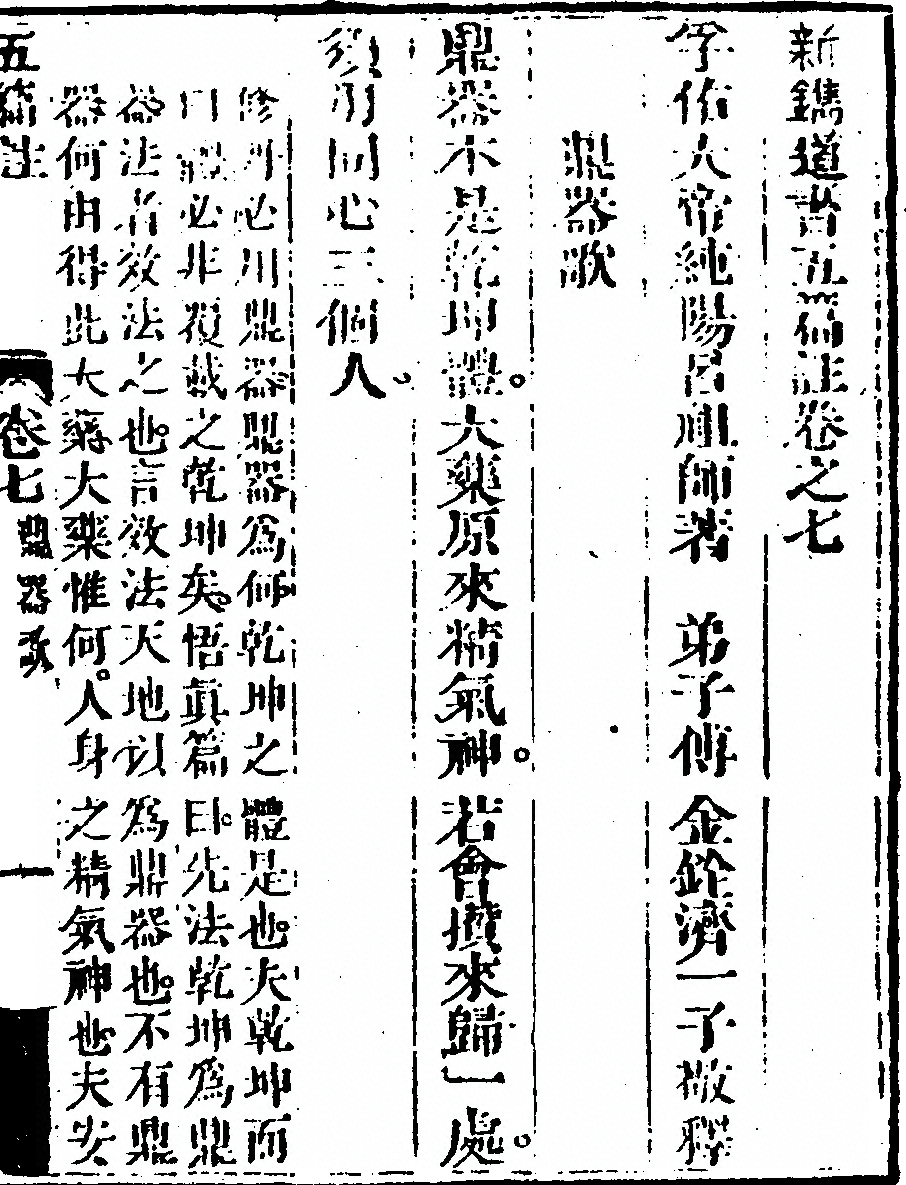 新鐫道書五篇註卷之七
孚佑大帝純陽呂祖師著　弟子傅金銓濟一子敬釋
鼎器歌
鼎器本是乾坤體。大藥原來精氣神。若會攢來歸一處。
須用同心三個人。
修丹必用鼎器鼎器爲何乾坤之體是也夫乾坤而
曰體必非覆載之乾坤矣。悟眞篇曰。先法乾坤爲鼎
器法者效法之也。言效法天地以爲鼎器也。不有鼎
器何由得此大藥大藥惟何。人身之精氣神也夫安
五篇註　卷七　鼎器歌　一